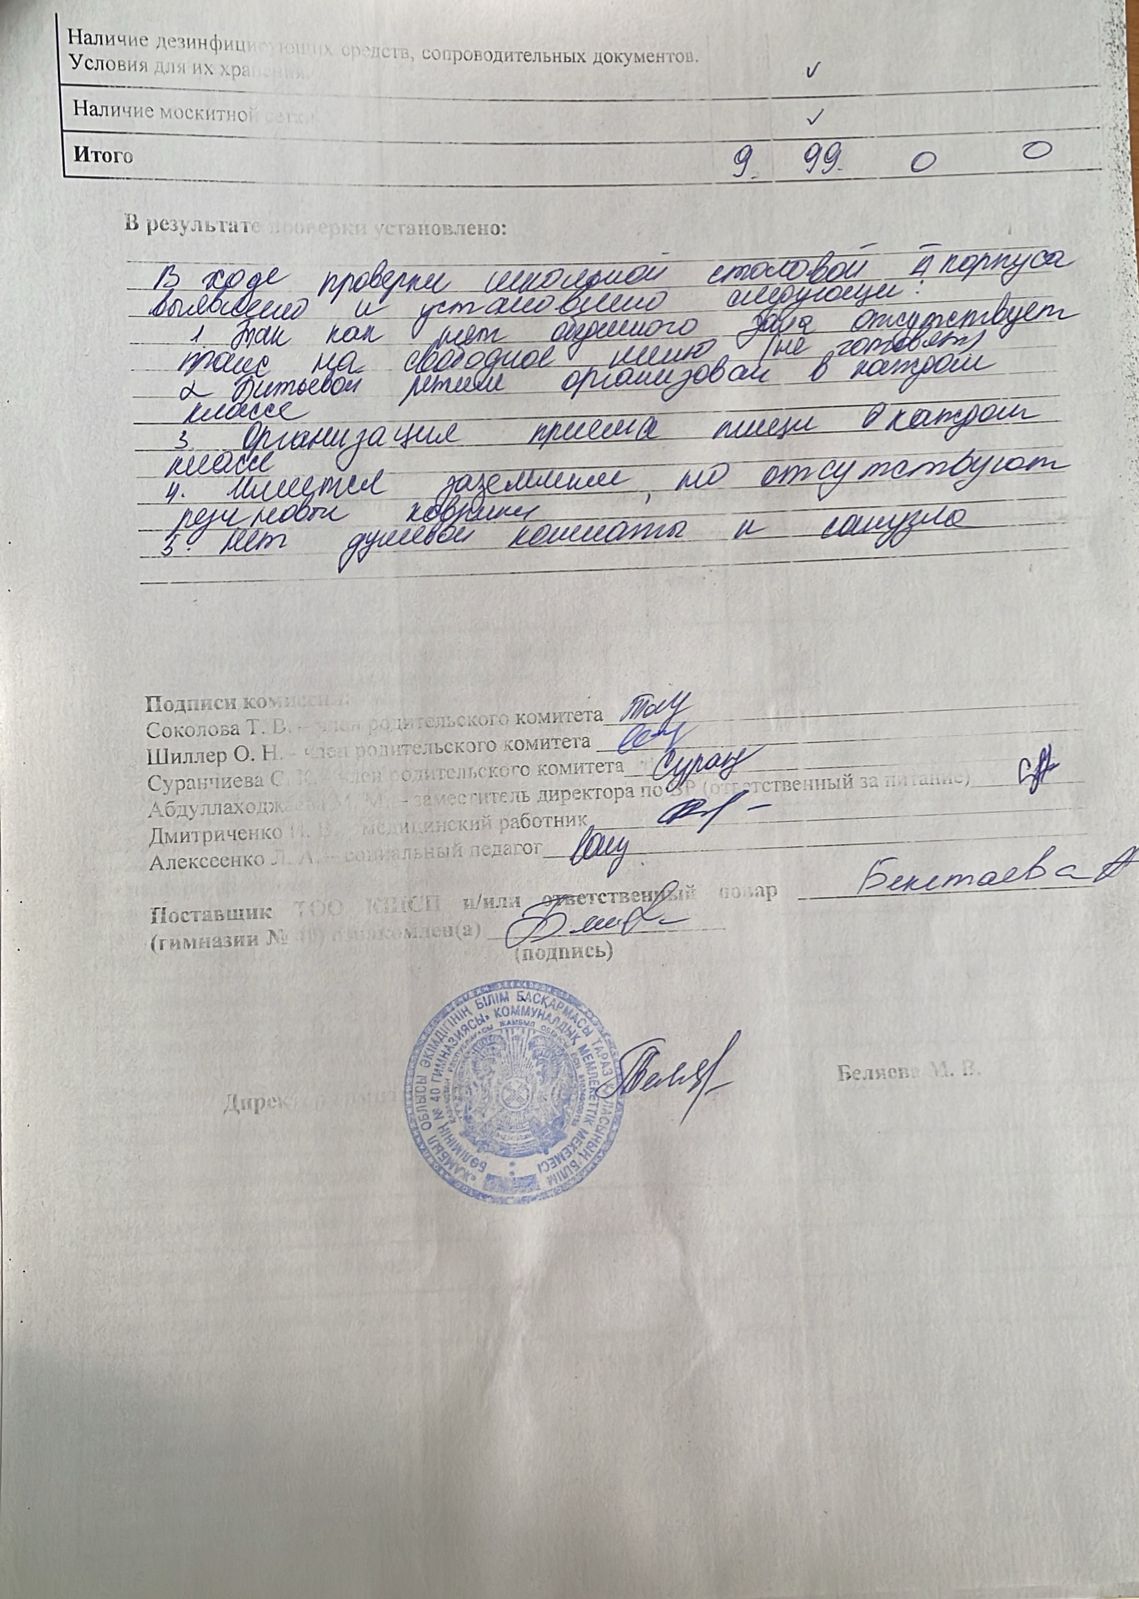 Наличие дезинфицирующих средств, сопроводительных документов.
Условия для их хранения.
Наличие москитной сетки
Итого 9. 99. 0 0
В результате проверки установлено:
В ходе проверки школьной столовой II корпуса
выявлено и установлено следующее:
1. Так как нет обеденного зала отсутствует
прайс на свободное меню (не готовят)
2 Питьевой режим организован в каждом
классе
3. Организация приема пищи в каждом
классе
4. Имеется заземление, но отсутствуют
резиновые коврики
5. Нет душевой комнаты и санузла
Подписи комиссии:
Соколова Т. В. – член родительского комитета
Шиллер О. Н. – член родительского комитета
Суранчиева С. член родительского комитета Суран
заместитель директора по ВР (ответственный за питание)
Дмитриченко медицинский работник
Алексеенко Л. А. – социальный педагог
Поставщик ТОО и/или ответственный повар Бекетаева А
(гимназии № 40) ознакомлен(а)
(подпись)
Директор Беляева М. В.
«ЖАМБЫЛ ОБЛЫСЫ ӘКІМДІГІНІҢ БІЛІМ БАСҚАРМАСЫ ТАРАЗ ҚАЛАСЫНЫҢ БІЛІМ
БӨЛІМІНІҢ № 40 ГИМНАЗИЯСЫ» КОММУНАЛДЫҚ МЕМЛЕКЕТТІК МЕКЕМЕСІ